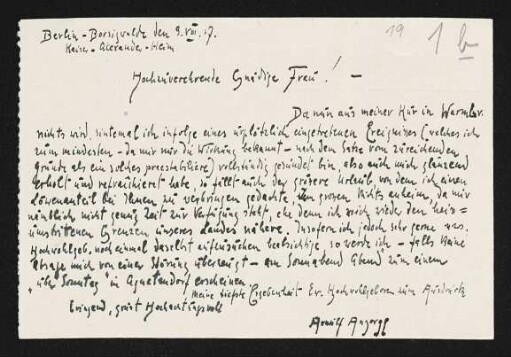 Berlin - Borsigwalde den 9. VIII. 17.
Kaiser - Alexander - Heim
19
1 b
Hochzuverehrende Gnädige Frau! —
Da nun aus meiner Kur in
nichts wird, sintemal ich infolge eines urplötzlich eingetretenen Ereignisses (welches ich
zum mindesten - da mir nur die Wirkung bekannt - nach dem Satze vom zureichenden
Grunde als ein solches praestabiliere) vollständig gesundet bin, also auch mich glänzend
erholt und habe, so fällt auch der grössere Urlaub, von dem ich einen
Löwenanteil bei Ihnen zu verbringen gedachte, dem grossen Nichts anheim, da mir
nämlich nicht genug Zeit zur Verfügung steht, ehe denn ich mich wieder den heiss =
umstrittenen Grenzen unseres Landes nähere. Insofern ich jedoch sehr gerne
Hochwohlgeb. noch einmal daselbst aufzusuchen beabsichtige, so werde ich - falls keine
Absage mich von einer Störung überzeugt - am Sonnabend Abend zum einem
"übr Sonntag" in Agnetendorf erscheinen.
Meine tiefste Ergebenheit Ew. Hochwohlgeboren zum Ausdruck
bringend, grüsst Hochachtungsvoll
Arnulf